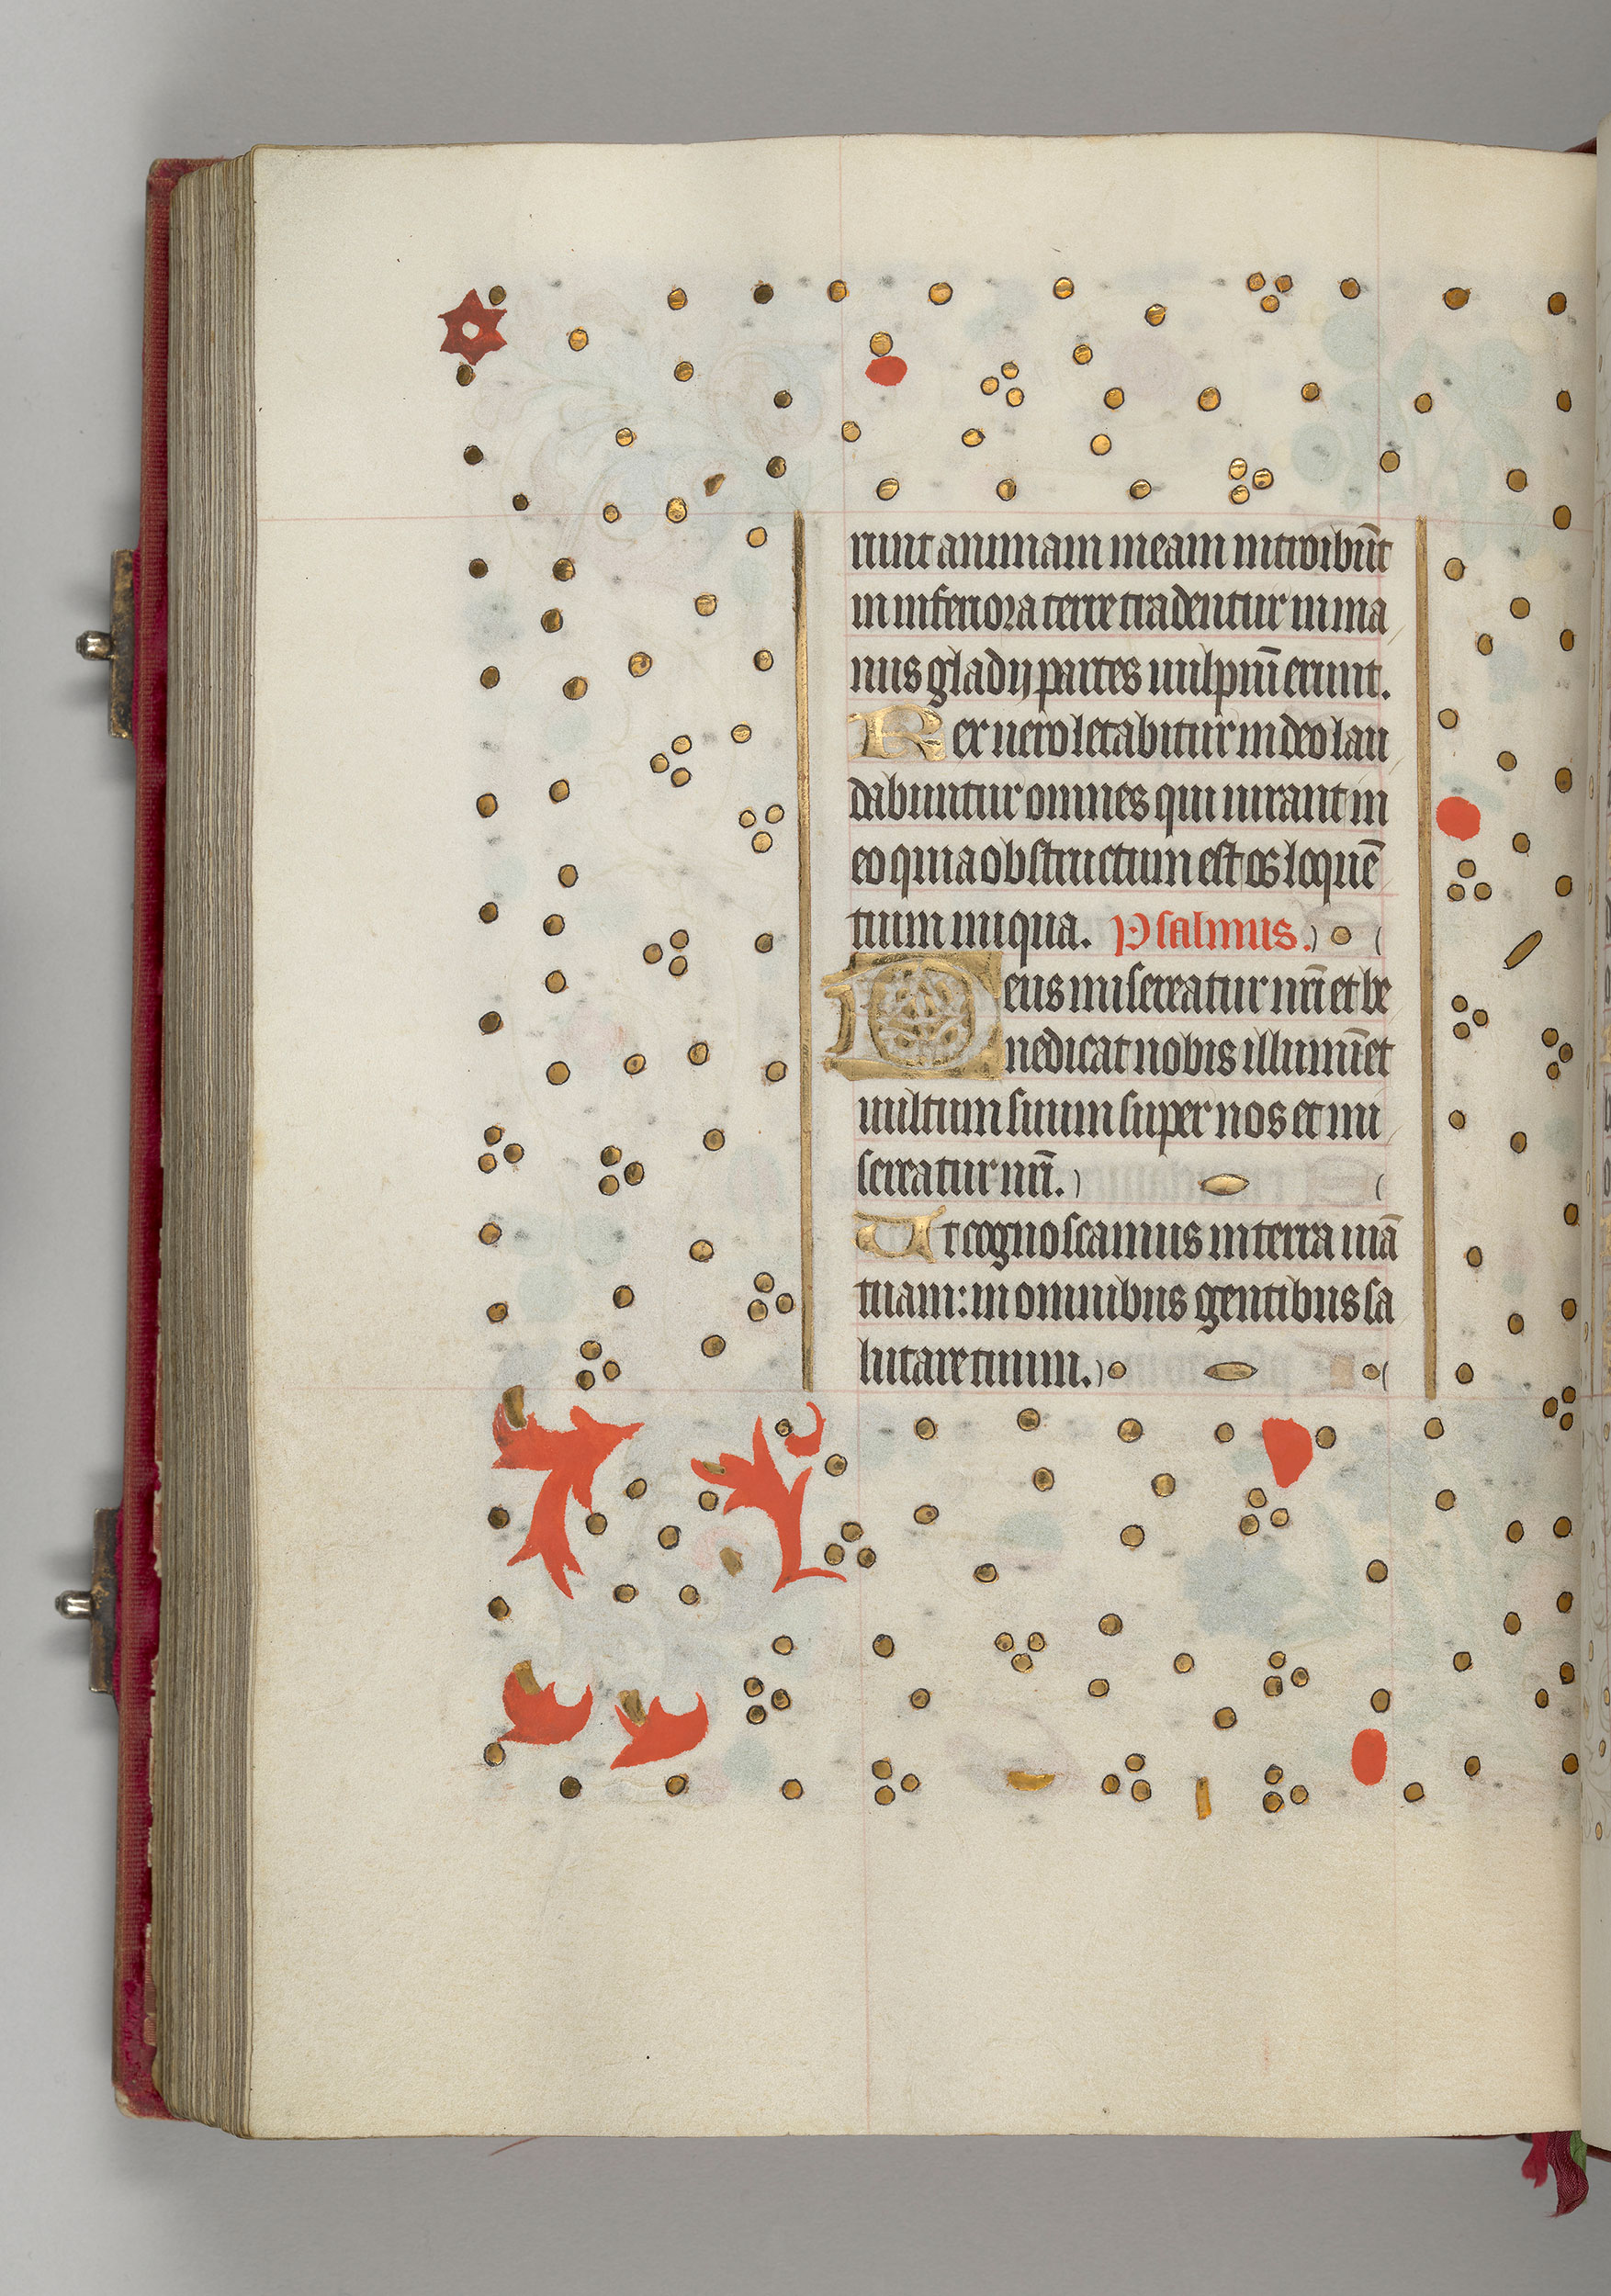 runt animam meam introibūt
in inferiora terre tradentur in ma
nus gladij partes uulpiū erunt.
Rex uero letabitur in deo lau
dabuntur omnes qui iurant in
eo quia obstructum est os loquē
tium iniqua. Psalmus.
Deus misereatur nrī et be
nedicat nobis illumīet
uultum suum super nos et mi
sereatur nrī.
Ut cognoscamus in terra uiā
tuam: in omnibus gentibus sa
lutare tuum.